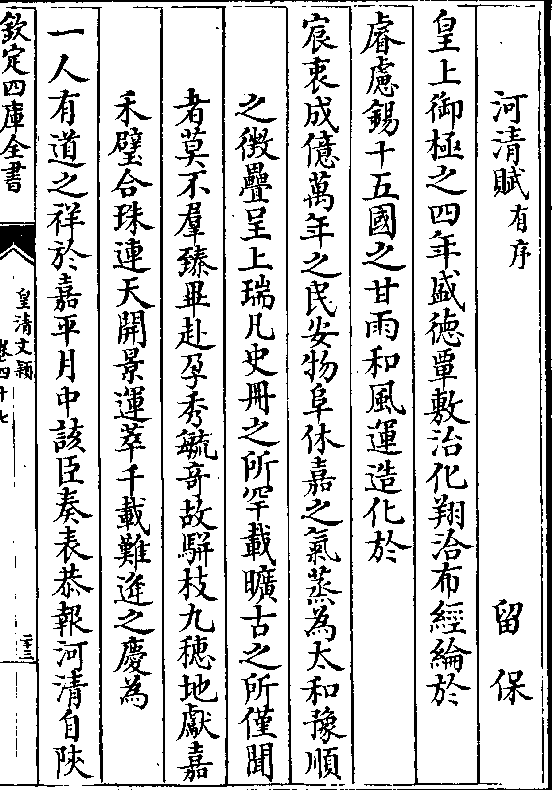 河清賦有序
留保
皇上御極之四年盛徳覃敷治化翔洽布經綸於
睿慮錫十五國之甘雨和風運造化於
宸衷成億萬年之民安物阜休嘉之氣蒸為太和豫順
之徴疊呈上瑞凡史冊之所罕載曠古之所僅聞
者莫不羣臻畢赴孕秀毓竒故駢枝九穂地獻嘉
禾璧合珠連天開景運萃千載難逢之慶為
一人有道之祥於嘉平月中該臣奏表恭報河清自陝
欽定四庫全書
皇清文頴
卷四十七
二十三